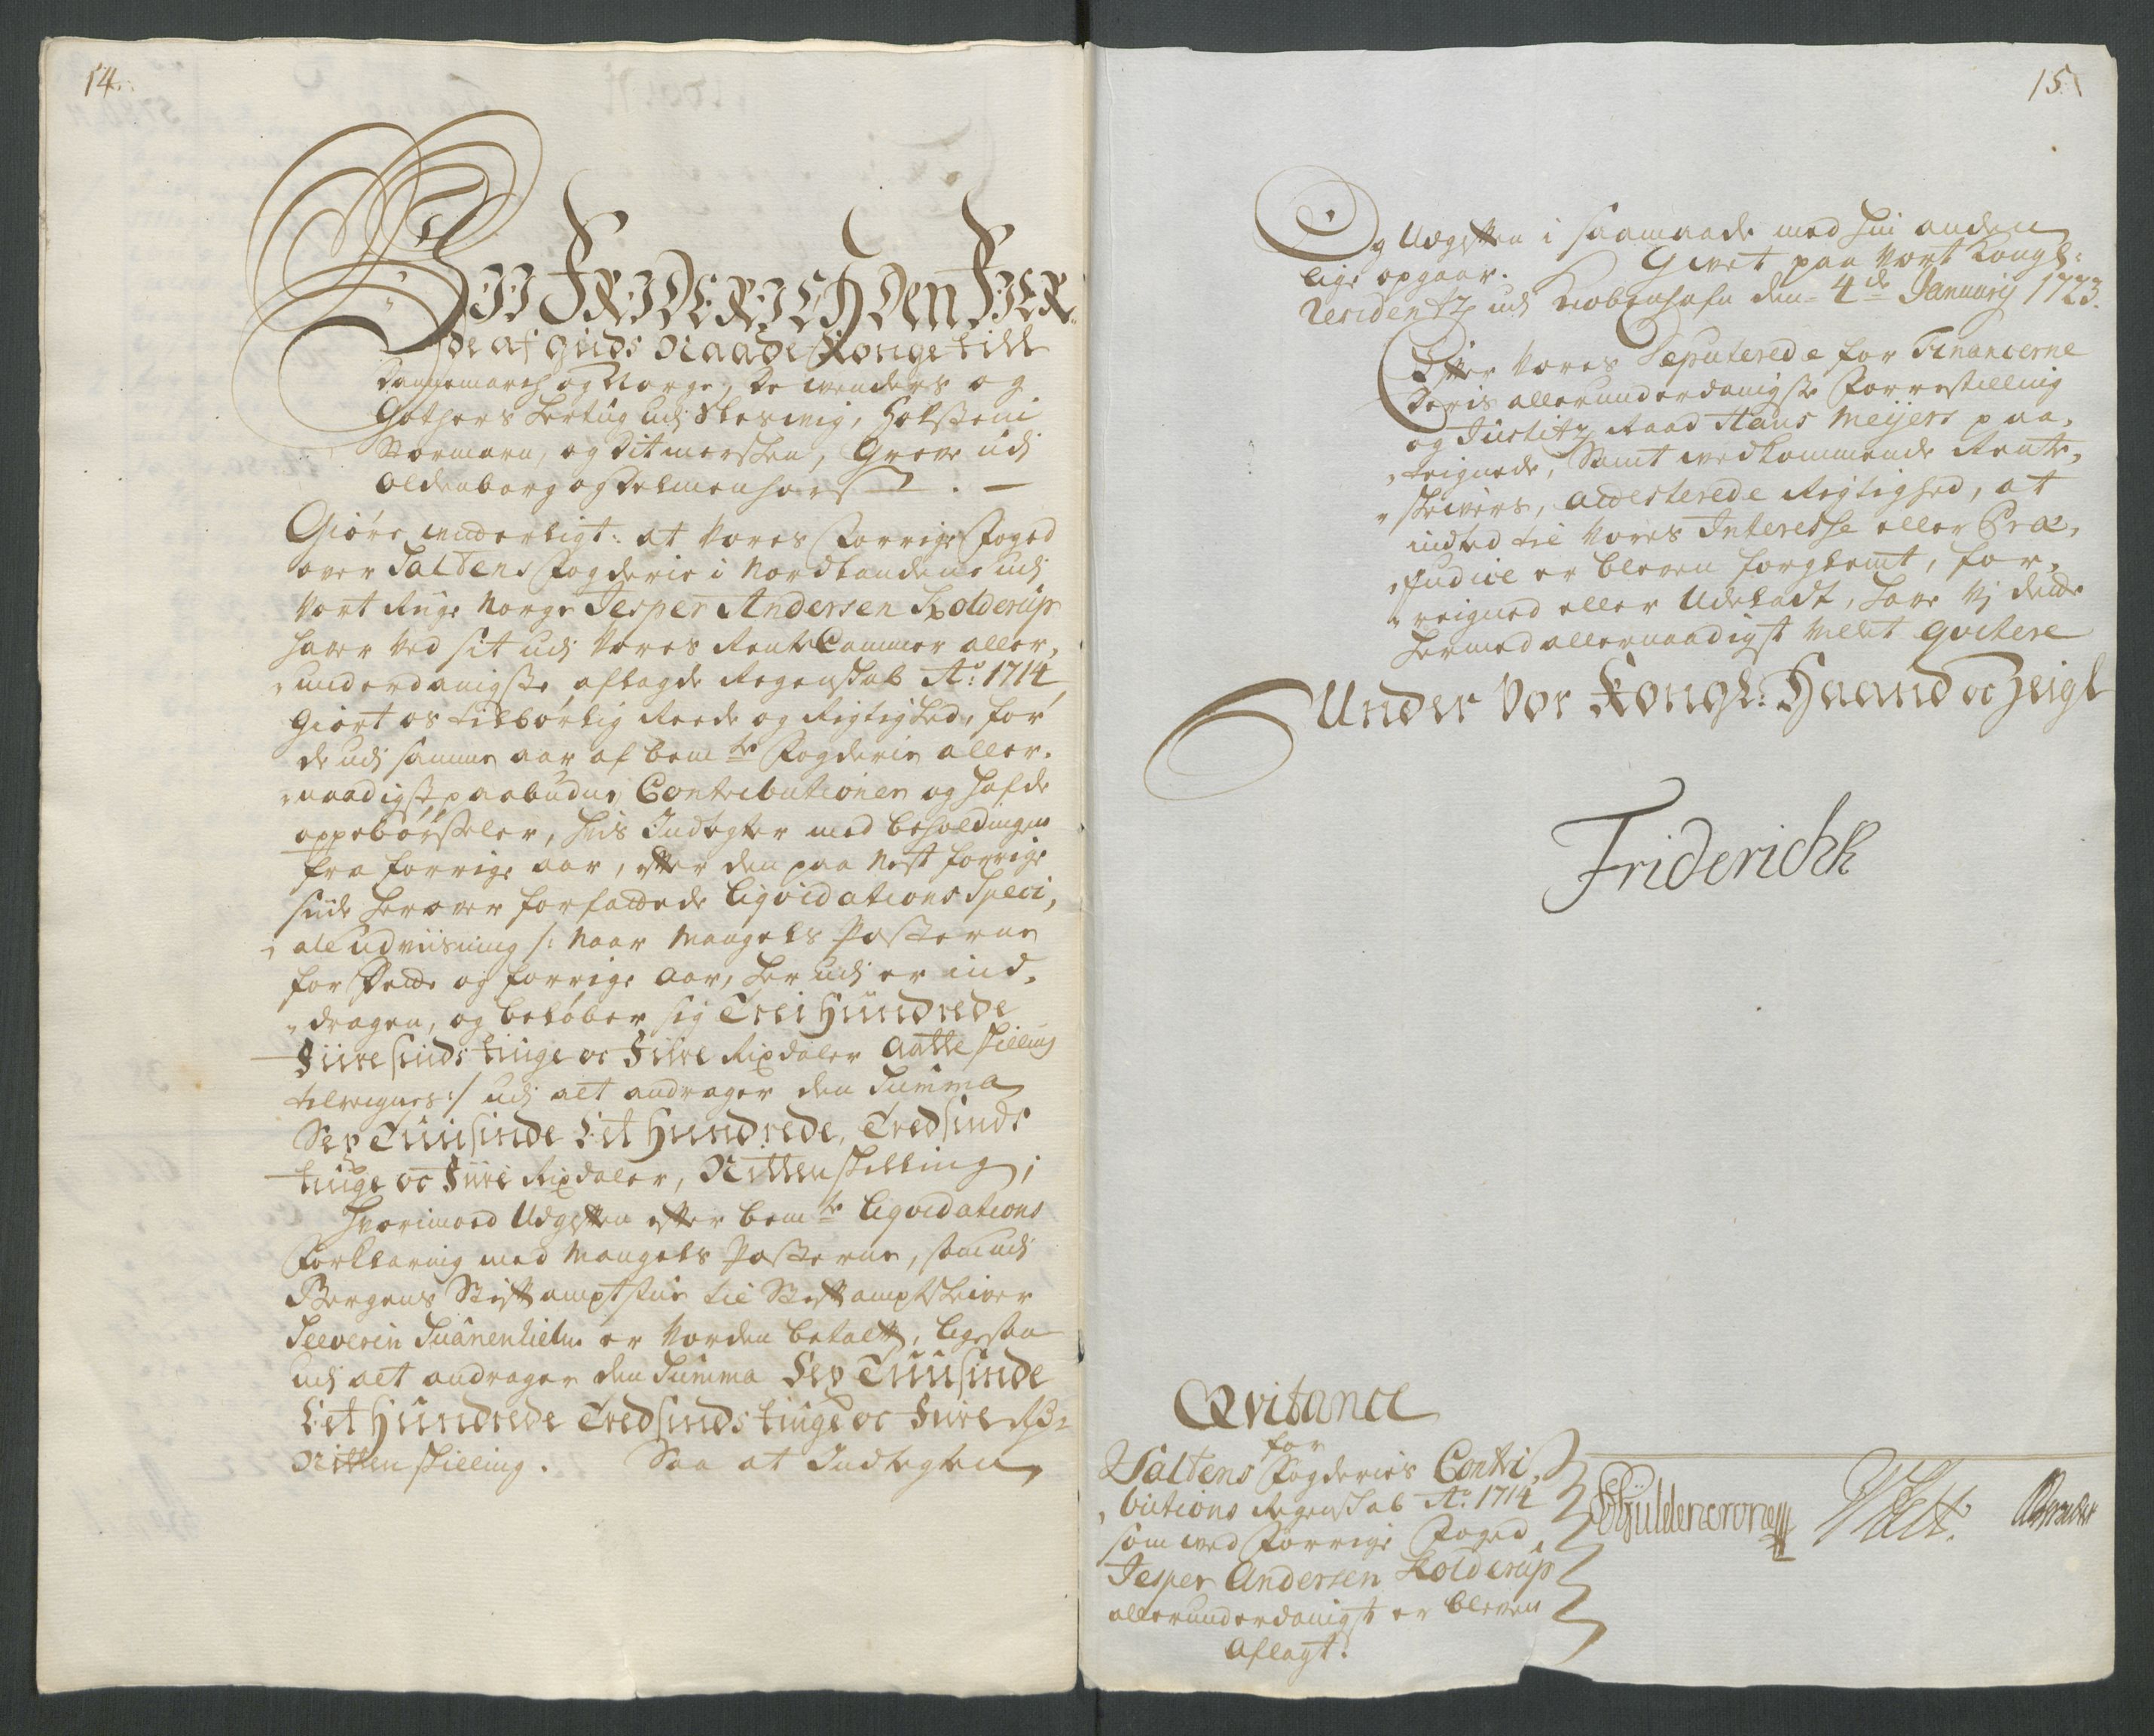 14.
Vii Friderich den Fier-
de af Guds Naade Konge till
Dannemarch og Norge, de Wenders og
Gothers Hertug udj Slesvig, Holsten
Stormarn, og Ditmersken, Greve udj
Oldenborg og Delmenhorst.
Giöre witterligt: at Vores Forrige Foged
over Saltens Fogderie i Nordlandene udj
Vort Rige Norge Jesper Andersen Kolderup
haver ved sit udj Vores Rente Cammer aller,
,underdanigste aflagde Regenskab A:o 1714
Giort os tilbörlig Reede og Rigtighed, for
de udj samme aar af bem:te Fogderie aller-
,naadigst paabudne Contributioner og hafde
oppebörseler, hvis Indtegter med beholdningen
fra forrige aar, efter den paa Nest forrige
side herover forfattede Liqvidations Speci,
,ale udviisning /: Naar Mangels Posterne
for dette og forrige Aar, her udj er ind,
,dragen, og belöber sig Trei Hundrede
Fiiresindstiuge oc Fiire Rixdaler Aatte skilling
tilregnes :/ udj alt andrager den Summa
Sex Tuusinde Eet Hundrede, Tredsinds
tiuge oc Fiire Rixdaler, Nitten skilling;
Hvorimoed Udgiften efter bem:te Liqvidations
Forklaring med Mangels Posterne, som udj
Bergens Stiftamptstue til Stiftamptskriver
Seeverin Svanenhielm er Vorden betalt, ligesaa
udj alt andrager den Summa Sex Tuusinde
Eet Hundrede Tredsindstiuge oc Fiire Rd:
Nitten skilling. Saa at Indtegten
15
Og Udgiften i saamaade med hin anden
lige opgaar. Givet paa Vort Kongl:
Residentz udj Kiobenhafn den 4de Januarij 1723.
Efter Vores Deputerede for Financerne
deris allerunderdanigste Forrestilling
og Justitz Raad Hans Meijers paa,
,teignede, Samt vedkommende Rente,
,skrivers, attesterede Rigtighed, at
indted til Vores Interesse eller Præ,
,judice er bleven forglemt, for,
,reigned eller Udeladt, have Vj dette
hermed allernaadigst Villet qvitere
Under Vor Kongl: Haand oc Zeigl
Friderich R
Qvitance
for
Saltens Fogderies Contri,
,butions Regenskab A:o 1714
som ved Forrige Foged
Jesper Andersen Kolderup
allerunderdanigst er bleven
Aflagt.
CGüldencrone